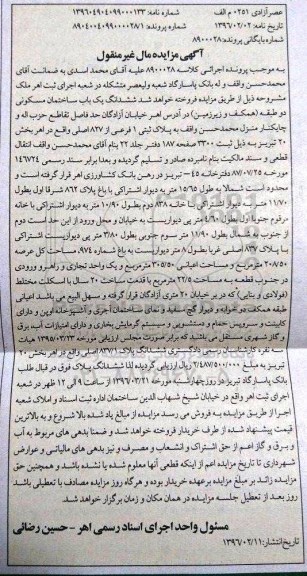 عصر آزادی ۰۲۵۱ م الف شماره نامه: ۱۳۹۶۰۴۹۰۴۰۹۹۰۰۰۱۳۳
تاریخ نامه: ۱۳۹۶/۰۲/۰۲ شماره پرونده: ۸۹۰۴۰۰۴۰۹۹۰۰۰۰۲۸/۱
شماره بایگانی پرونده: ۸۹۰۰۰۲۸
آگهی مزایده مال غیرمنقول
به موجب پرونده اجرائی کلاسه ۸۹۰۰۰۲۸ علیه آقای محمد اسدی به ضمانت آقای
محمدحسن واقف و له بانک پاسارگاد شعبه ولیعصر متشکله در شعبه اجرای ثبت اهر ملک
مشروحه ذیل از طریق مزایده فروخته خواهد شد ششدانگ یک باب ساختمان مسکونی
دو طبقه (همکف و زیرزمین) در آدرس اهر خیابان آزادگان حد فاصل تقاطع حزب اله و
چایکنار منزل محمدحسن واقف به پلاک ثبتی ۱ فرعی از ۸۳۷ اصلی واقع در اهر بخش
۲۰ تبریز به ذیل ثبت ۳۳۰۰ صفحه ۱۸۷ دفتر جلد ۲۲ بنام آقای محمدحسن واقف انتقال
قطعی و سند مالکیت بنام نامبرده صادر و تسلیم گردیده و بعدا برابر سند رسمی ۱۴۶۷۲۴
مورخه ۸۷/۰۷/۲۵ دفترخانه ۴۵ تبریز در رهن بانک کشاورزی اهر قرار گرفته است و
محدود است شمالا به طول ۱۵/۶۵ متر به دیوار اشتراکی با باغ پلاک ۸۶۲ شرقا اول بطول
۱۱/۷۰ متر به دیوار اشتراکی با خانه ۸۳۸ دوم بطول ۱۰/۹۰ متر به دیوار اشتراکی با خانه
مرقوم جنوبا اول بطول ۴/۶۰ متر پی دیواریست به خیابان و محل ورود از این حد است دوم
از جنوب به شمال بطول ۱۱/۹۰ متر سوم جنوبی بطول ۳/۸۰ متر پی دیواریست اشتراکی
با پلاک ۸۳۷ اصلی غربا بطول ۸ متر دیواریست به باغ شماره ۹۷۴، مساحت کل عرصه
۲۰۸/۵۰ مترمربع و مساحت اعیانی ۲۰۵/۵۰ مترمربع و یک واحد تجاری و راهرو ورودی
در جنوب قطعه به مساحت ۲۲/۵ مترمربع با قدمت ساخت ۲۰ سال با اسکلت مختلط
(فولادی و بنایی) که در بر خیابان ۲۰ متری آزادگان قرار گرفته و سهل البیع می باشد اعیانی
طبقه همکف دو خوابه و دیوار گچ سفید و نمای ساختمان آجری و آشپزخانه اوپن و دارای
کابینت و سرویس حمام و دستشویی و سیستم گرمایش بخاری و دارای امتیازات آب، برق
و گاز شهری مستقل می باشد که برابر صورت مجلس ارزیابی مورخه ۱۳۹۵/۰۳/۲۳ هیات
سه نفره کارشناسان رسمی دادگستری ششدانگ پلاک ۸۳۷/۱ اصلی واقع در اهر بخش ۲۰
تبریز به مبلغ ۲/۴۸۷/۵۰۰/۰۰۰ ریال ارزیابی گردیده لذا ششدانگ پلاک فوق در قبال طلب
بانک پاسارگاد تبریز در روز چهارشنبه مورخه ۱۳۹۶/۰۳/۳۱ از ساعت ۹ الی ۱۲ ظهر در شعبه
اجرای ثبت اهر واقع در خیابان شیخ شهاب الدین ساختمان اداره ثبت اسناد و املاک شعبه
اجرا از طریق مزایده به فروش می رسد مزایده از مبلغ یاد شده بالا شروع و به بالاترین
قیمت پیشنهاد شده از طرف خریدار فروخته خواهد شد و ضمنا بدهی های مربوط به آب
و برق و گاز اعم از حق اشتراک و انشعاب و مصرف و نیز بدهی های مالیاتی و عوارض
شهرداری تا تاریخ مزایده اعم از اینکه قطعی آنها معلوم شده یا نشده باشد و همچنین حق
مزایده زائد بر مبلغ مزایده برعهده خریدار بوده و هرگاه روز مزایده مصادف با تعطیلی باشد
روز بعد از تعطیل جلسه مزایده در همان مکان و زمان برگزار خواهد شد.
مسئول واحد اجرای اسناد رسمی اهر - حسین رضائی
تاریخ انتشار: ۱۳۹۶/۰۲/۱۱